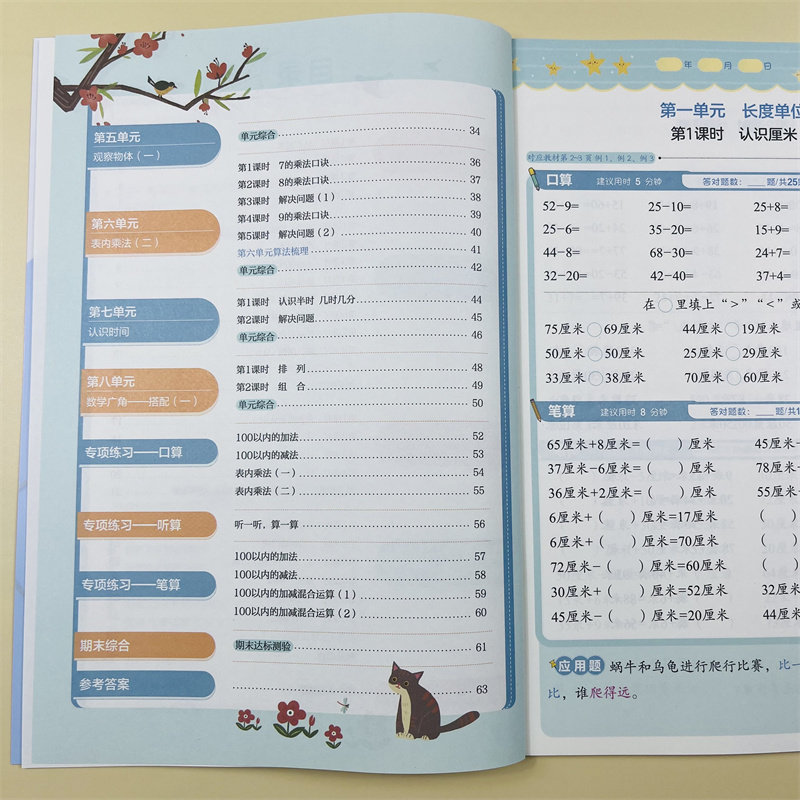 第五单元
观察物体（一）
单元综合 34
第六单元
表内乘法（二）
第1课时 7的乘法口诀 36
第2课时 8的乘法口诀 37
第3课时 解决问题（1） 38
第4课时 9的乘法口诀 39
第5课时 解决问题（2） 40
第六单元算法梳理 41
单元综合 42
第七单元
认识时间
第1课时 认识半时 几时几分 44
第2课时 解决问题 45
单元综合 46
第八单元
数学广角——搭配（一）
第1课时 排 列 48
第2课时 组 合 49
单元综合 50
专项练习——口算
100以内的加法 52
100以内的减法 53
表内乘法（一） 54
表内乘法（二） 55
专项练习——听算
听一听，算一算 56
专项练习——笔算
100以内的加法 57
100以内的减法 58
100以内的加减混合运算（1） 59
100以内的加减混合运算（2） 60
期末综合
期末达标测验 61
参考答案 63
年 月 日
第一单元 长度单位
第1课时 认识厘米
对应教材第2~3页例1、例2、例3
口算 建议用时 5 分钟 答对题数：___题/共25
52-9= 25-10= 25+8=
25-6= 35-20= 15+9=
44-8= 68-30= 24+7=
32-20= 42-40= 37+4=
在○里填上“>”“<”或
75厘米○69厘米 44厘米○19厘米
50厘米○50厘米 25厘米○29厘米
33厘米○38厘米 70厘米○60厘米
笔算 建议用时 8 分钟 答对题数：___题/共1
65厘米+8厘米=（ ）厘米 45厘米-
37厘米-6厘米=（ ）厘米 78厘米-
36厘米+2厘米=（ ）厘米 55厘米-
6厘米+（ ）厘米=17厘米 （ ）
6厘米+（ ）厘米=70厘米 （ ）
72厘米-（ ）厘米=60厘米 （ ）
30厘米+（ ）厘米=52厘米 32厘米
45厘米-（ ）厘米=20厘米 44厘米
应用题 蜗牛和乌龟进行爬行比赛，比一
比，谁爬得远。